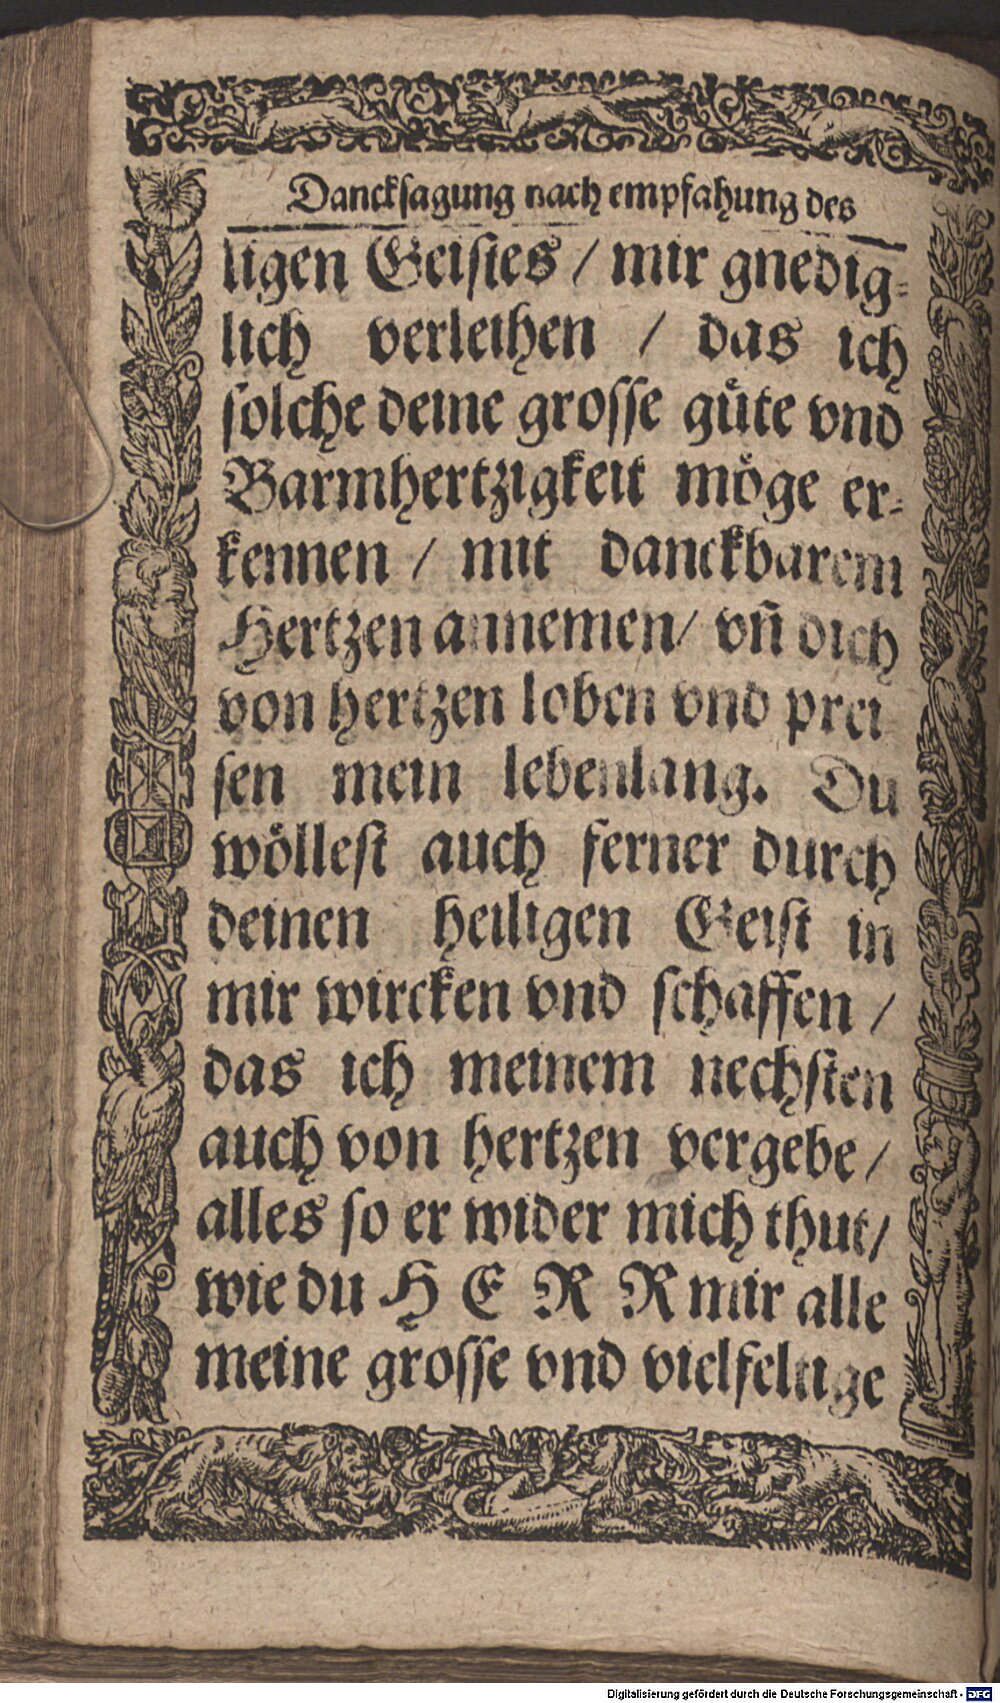 Dancksagung nach empfahung des
ligen Geistes / mir gnedig-
lich verleihen / das ich
solche deine grosse guͤte vnd
Barmhertzigkeit moͤge er-
kennen / mit danckbarem
Hertzen annemen / vñ dich
von hertzen loben vnd prei
sen mein lebenlang. Du
woͤllest auch ferner durch
deinen heiligen Geist in
mir wircken vnd schaffen /
das ich meinem nechsten
auch von hertzen vergebe /
alles so er wider mich thut /
wie du HERR mir alle
meine grosse vnd vielfeltige
Digitalisierung gefördert durch die Deutsche Forschungsgemeinschaft - DFG